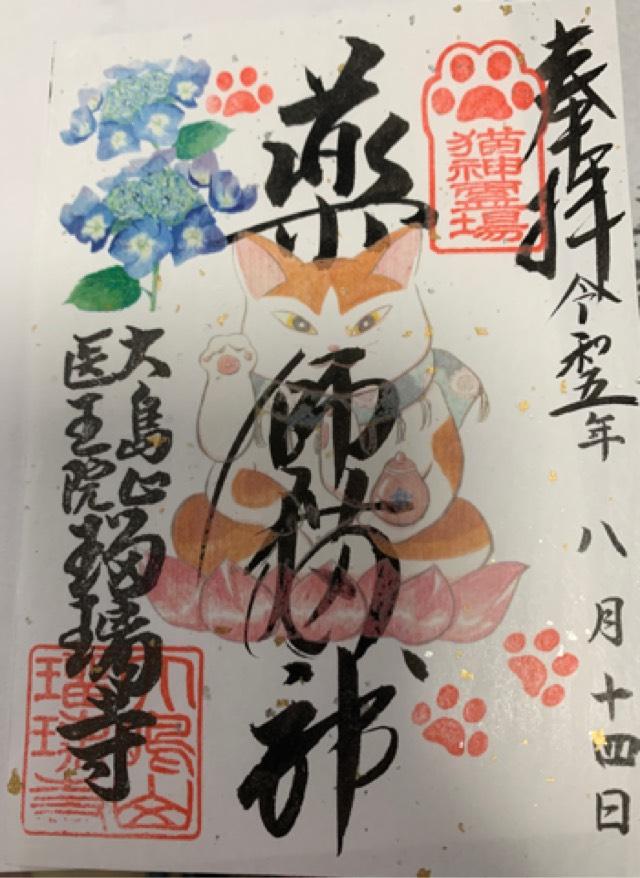 奉拝
令和五年 八月十四日
猫神霊場
薬師猫神
大島山瑠璃寺
医王院
大嶋山
瑠璃寺